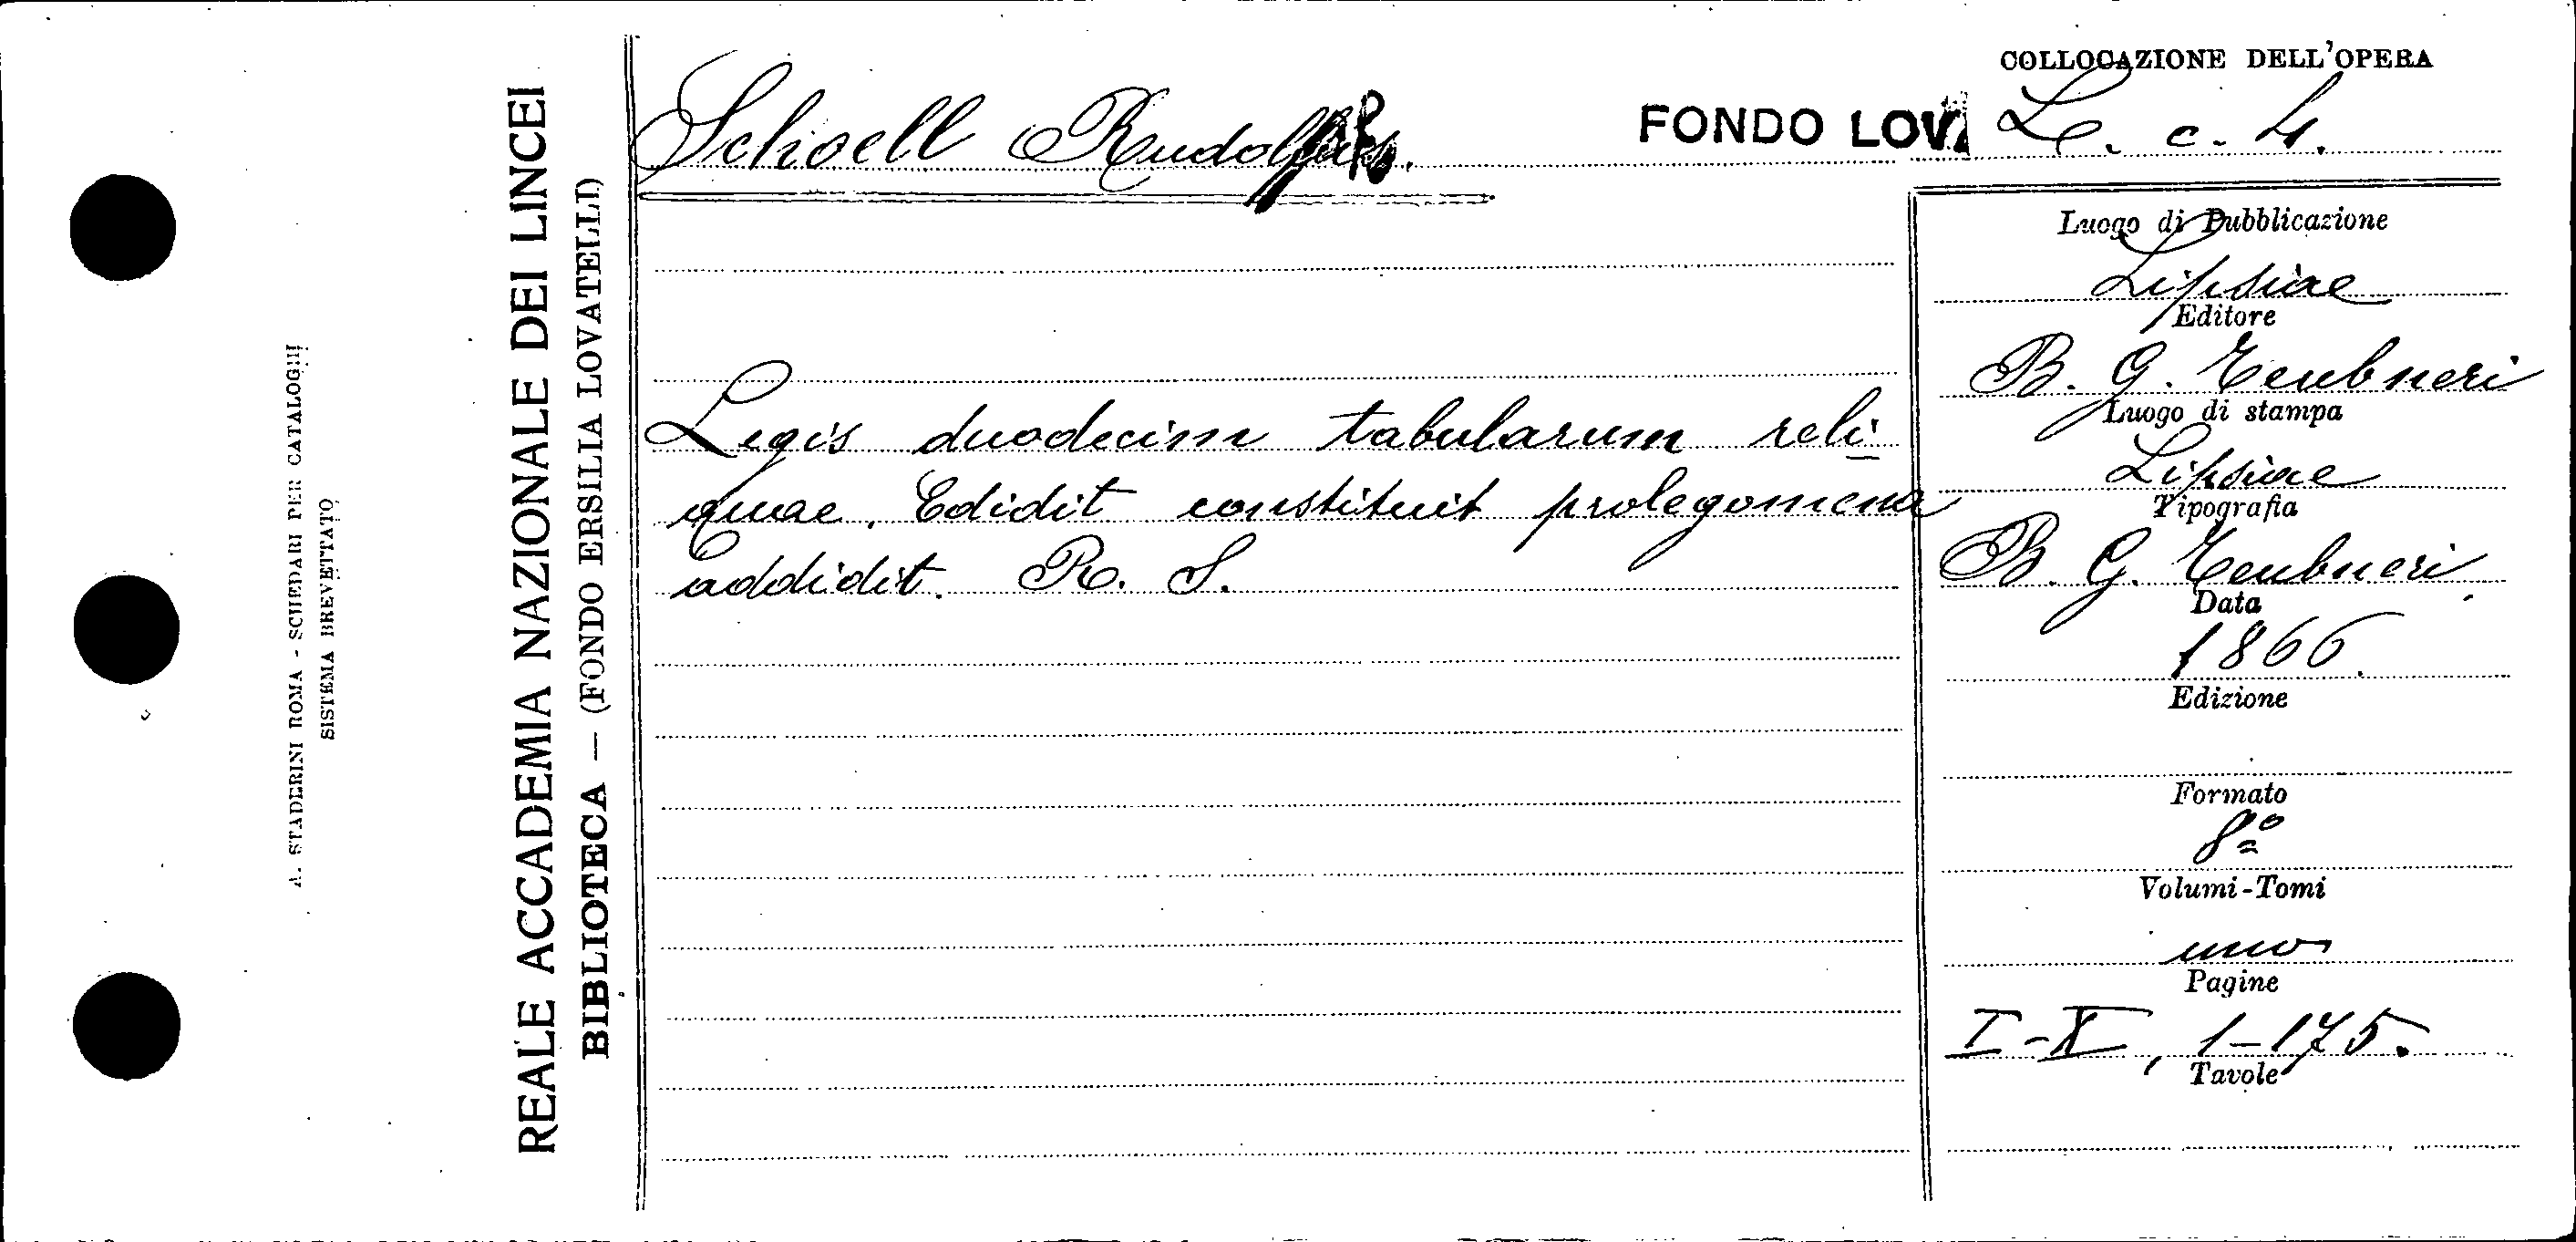 A. STADERINI ROMA - SCHEDARI PER CATALOGHI
SISTEMA BREVETTATO
REALE ACCADEMIA NAZIONALE DEI LINCEI
BIBLIOTECA — (FONDO ERSILIA LOVATELLI)
Schoell
FONDO
COLLOCAZIONE DELL'OPERA
L. c. 4.
Legis duodecim tabularum reli-
quae. Edidit constituit prolegomena
addidit. R. S.
Luogo di Pubblicazione
Lipsiae
Editore
B. G. Teubneri
Luogo di stampa
Lipsiae
Tipografia
B. G. Teubneri.
Data
1866.
Edizione
Formato
8º
Volumi-Tomi
uno
Pagine
I-X, 1-175.
Tavole